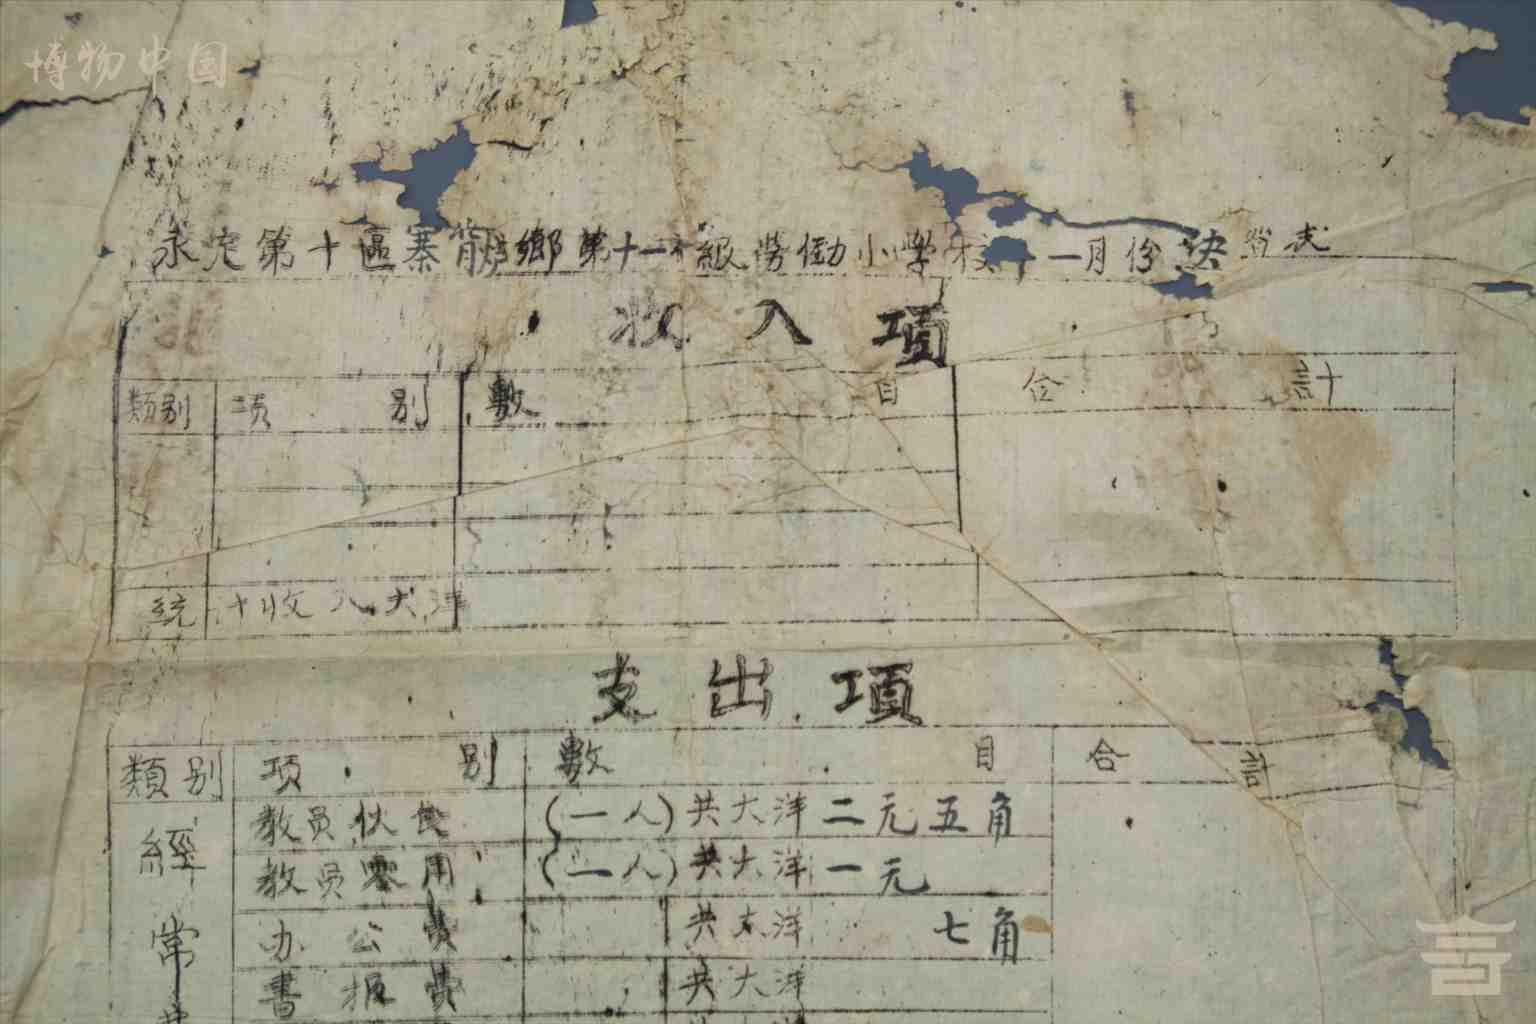 博物中国
永定第十區寨背鄉第十一級勞働小學校十一月份決算表
收入項
類别 項别 數目 合計
統計收入大洋
支出項
類别 項别 數目 合計
經常 教員伙食 (一人)共大洋二元五角
教員零用 (一人)共大洋一元
办公費 共大洋 七角
書报費 共大洋